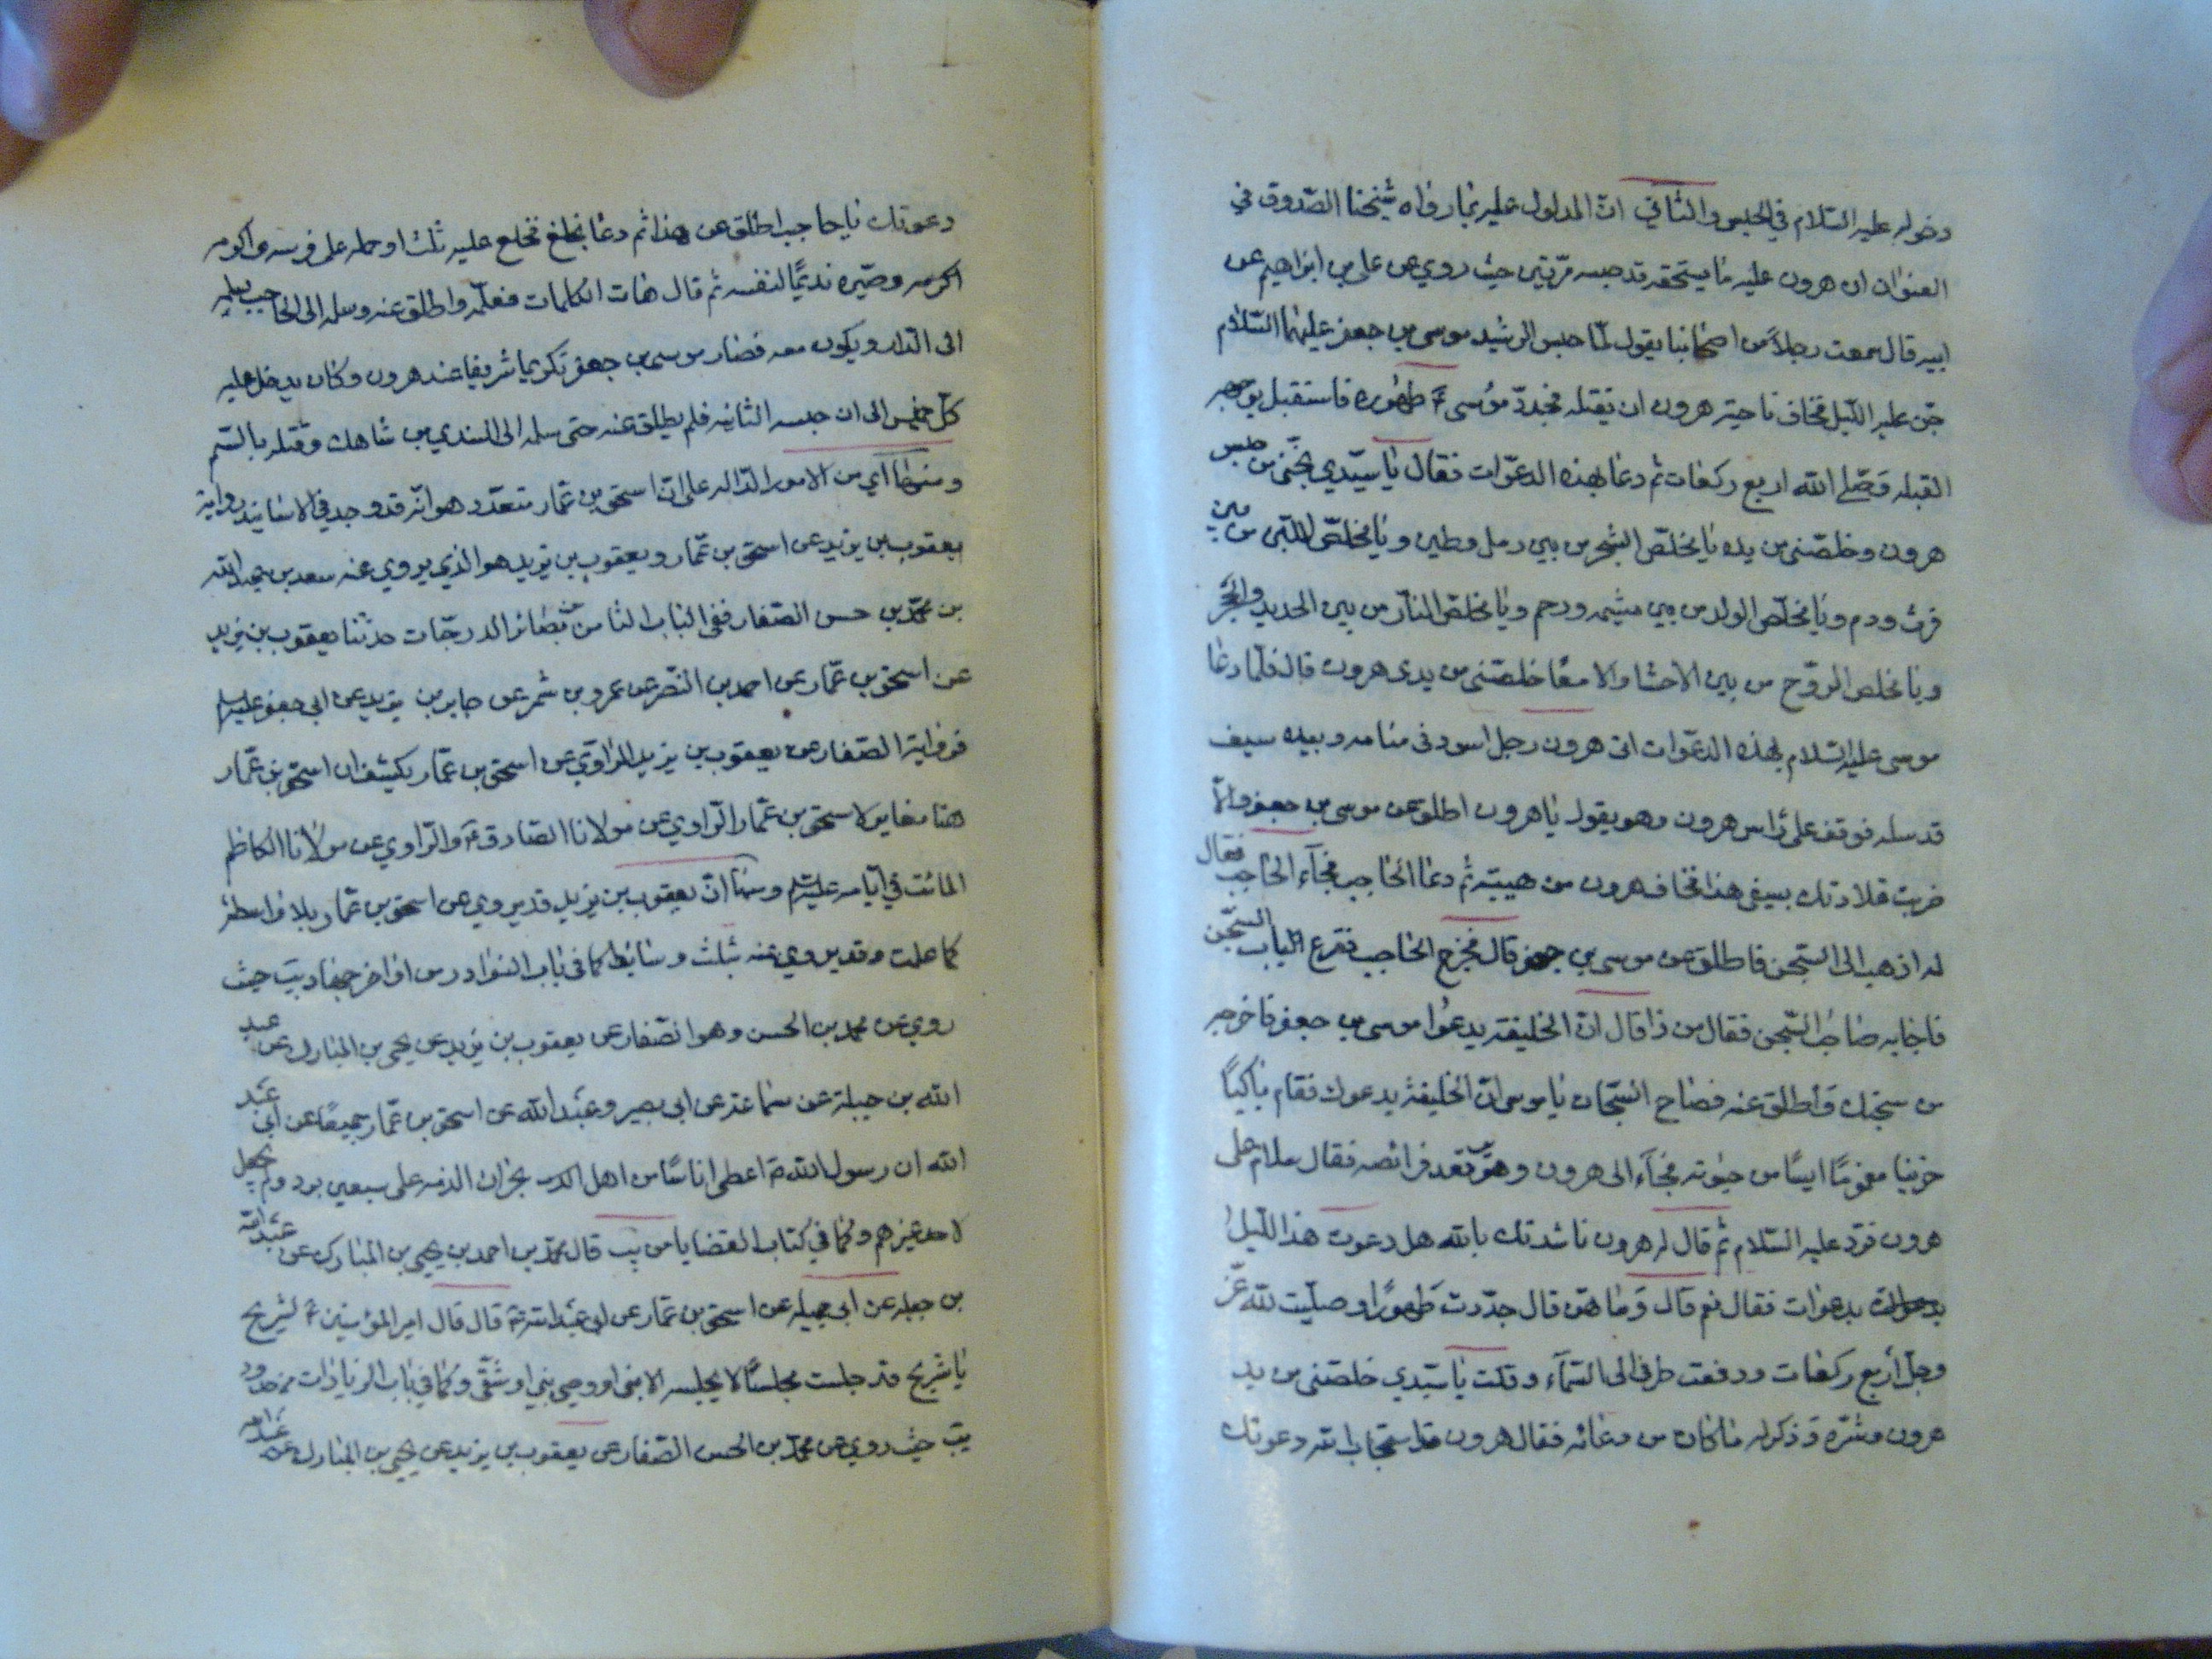 دخوله عليه السّلام في الحبس والثاني انّ المدلول عليه بما رواه شيخنا الصّدوق في
العنوان ان هرون عليه ما يستحقه قد حبسه مرّتين حيث روي عن علي بن ابراهيم عن
ابيه قال سمعت رجلاً من اصحابنا يقول لمّا حبس الرشيد موسى بن جعفر عليهما السّلام
جنّ عليه اللّيل فخاف ناحية هرون ان يقتله فجدّد موسى ع طهوره فاستقبل بوجهه
القبله وصّلى لله اربع ركعات ثم دعا بهذه الدعوات فقال يا سيّدي نجّني من حبس
هرون وخلصّني من يده يا مخلّص الشجر من بين رمل وطين ويا مخلّص اللّبن من بين
فرث ودم ويا مخلّص الولد من بين مشيمه ورحم ويا مخلّص النّار من بين الحديد والحجر
ويا مخلص الرّوح من بين الاحشا والامعا خلصّني من يدى هرون قال فلمّا دعا
موسى عليه السّلام بهذه الدعوات اتى هرون رجل اسود في منامه وبيده سيف
قد سله فوقف على رأس هرون وهو يقول يا هرون اطلق عن موسى بن جعفر والاّ
ضربت قلادتك بسيفى هذا فخاف هرون من هيبته ثم دعا الحاجب فجآء الحاجب فقال
له اذهب الى السّجن فاطلق عن موسى بن جعفر قال فخرج الحاجب فقرع الباب السّجن
فاجابه صاحب السّجن فقال من ذا قال انّ الخليفة يدعوا موسى بن جعفر فاخرجه
من سجنك وأطلق عنه فصاح السّجان يا موسى انّ الخليفة يدعوك فقام باكياً
حزينا مغموماً ايساً من حيوته فجآء الى هرون وهو يرتعد فرائصه فقال سلام على
هرون فردّ عليه السّلام ثم قال له هرون ناشدتك بالله هل دعوت هذا اللّيل
بدعوات فقال نعم قال وما هنّ قال جدّدت طهوراً وصلّيت لله عزّ
وجلّ أربع ركعات ورفعت طرفى الى السّمآء وقلت يا سيّدي خلصّني من يد
هرون وشرّه وذكر له ما كان من دعائه فقال هرون قد استجاب الله دعوتك
دعوتك يا حاجب اطلق عن هذا ثم دعا بخلع فخلع عليه ثلثا وحمله على فرسه واكرمه
اكرمه وصيّره نديمًا لنفسه ثم قال هات الكلمات فعلّمه واطلق عنه وسلمه الى الحاجب ليسلمه
الى الدّار ويكون معه فصار موسى بن جعفر كريما شريفا عند هرون وكان يدخل عليه
كلّ خميس الى ان حبسه الثانيه فلم يطلق عنه حتى سلمه الى السندي بن شاهك وقتله بالسّم
ومنها أي من الامور الدّاله على انّ اسحق بن عمّار متعدّد هو انّه قد وجد في الاسانيد رواية
يعقوب بن يزيد عن اسحق بن عمّار ويعقوب بن يزيد هو الذي يروي عنه سعد بن عبد الله
بن محمّد بن حسن الصّفار ففي الباب الثامن من بصائر الدرجات حدّثنا يعقوب بن يزيد
عن اسحق بن عمّار عن احمد بن النّضر عن عمرو بن شمر عن جابر بن يزيد عن ابى جعفر عليه السلام
فرواية الصّفار عن يعقوب بن يزيد الرّاوي عن اسحق بن عمّار يكشف ان اسحق بن عمّار
هنا مغاير لاسحق بن عمّار الرّاوي عن مولانا الصّادق ع والرّاوي عن مولانا الكاظم
المائت في ايّامه عليه السلام ومنها انّ يعقوب بن يزيد قد يروي عن اسحق بن عمّار بلا واسطة
كما علمت وقد يروي عنه بثلث وسائط كما في باب النوادر من اواخر جهاد يب حيث
روي عن محمد بن الحسن وهو الصّفار عن يعقوب بن يزيد عن يحيى بن المبارك عن عبد
الله بن جبلة عن سماعة عن ابى بصير وعبد الله عن اسحق بن عمّار جميعًا عن ابى عبد
الله ان رسول الله ص اعطى اناسًا من اهل نجران الذمه على سبعين برد ولم يجعل
لاحد غيرهم وكما في كتاب القضايا من يب قال محمّد بن احمد بن يحيى بن المبارك عن عبد الله
بن جبله عن ابى جميله عن اسحق بن عمّار عن ابى عبد الله ع قال قال امير المؤمنين ع لشريح
يا شريح قد جلست مجلسًا لا يجلسه الا نبى او وصى نبى او شقى وكما في باب الزيادات من حدود
يب حيث روي عن محمّد بن الحسن الصّفار عن يعقوب بن يزيد عن يحيى بن المبارك عن عبد الله